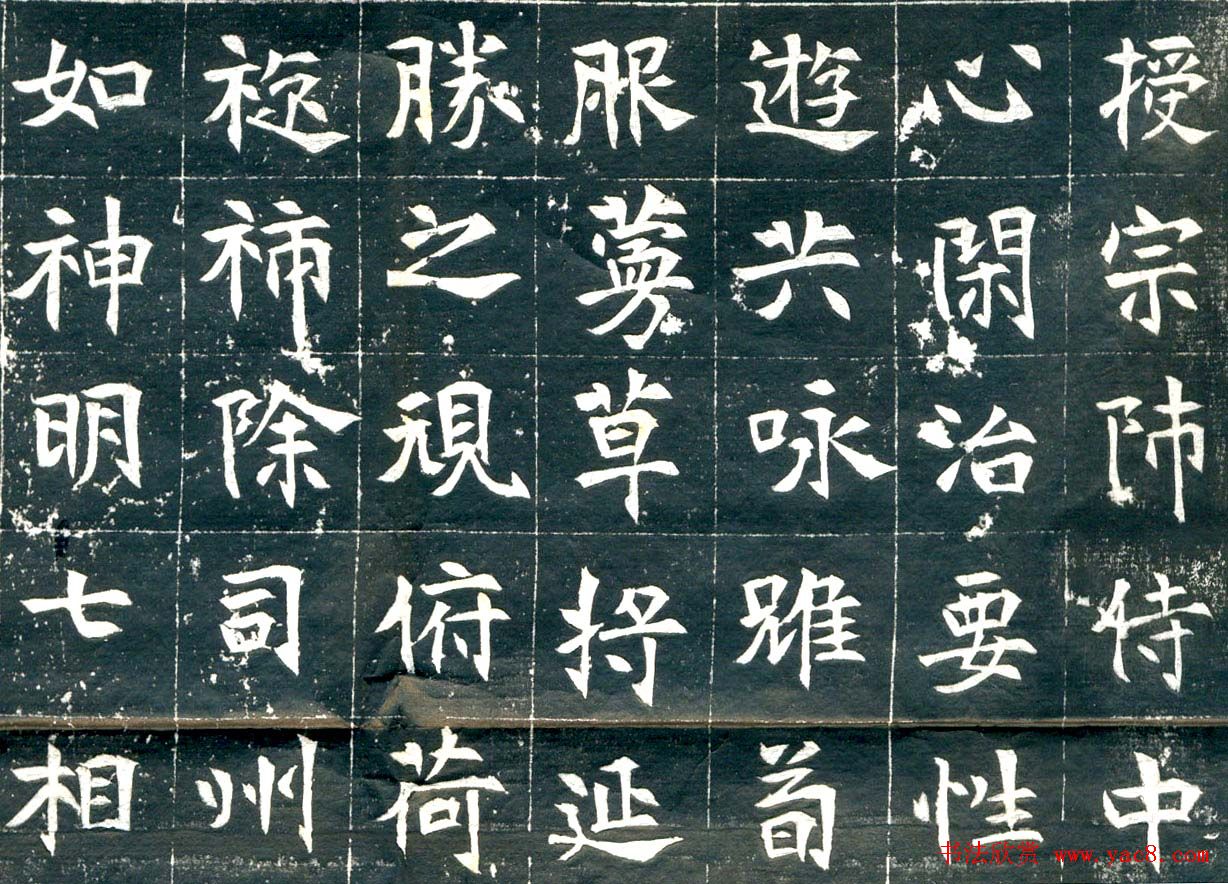 授宗師侍中
心閑治要性
遊共咏雖荀
服草将延
勝之規俯荷
旋旆除司州
如神明七相
书法欣赏 www.yac8.com